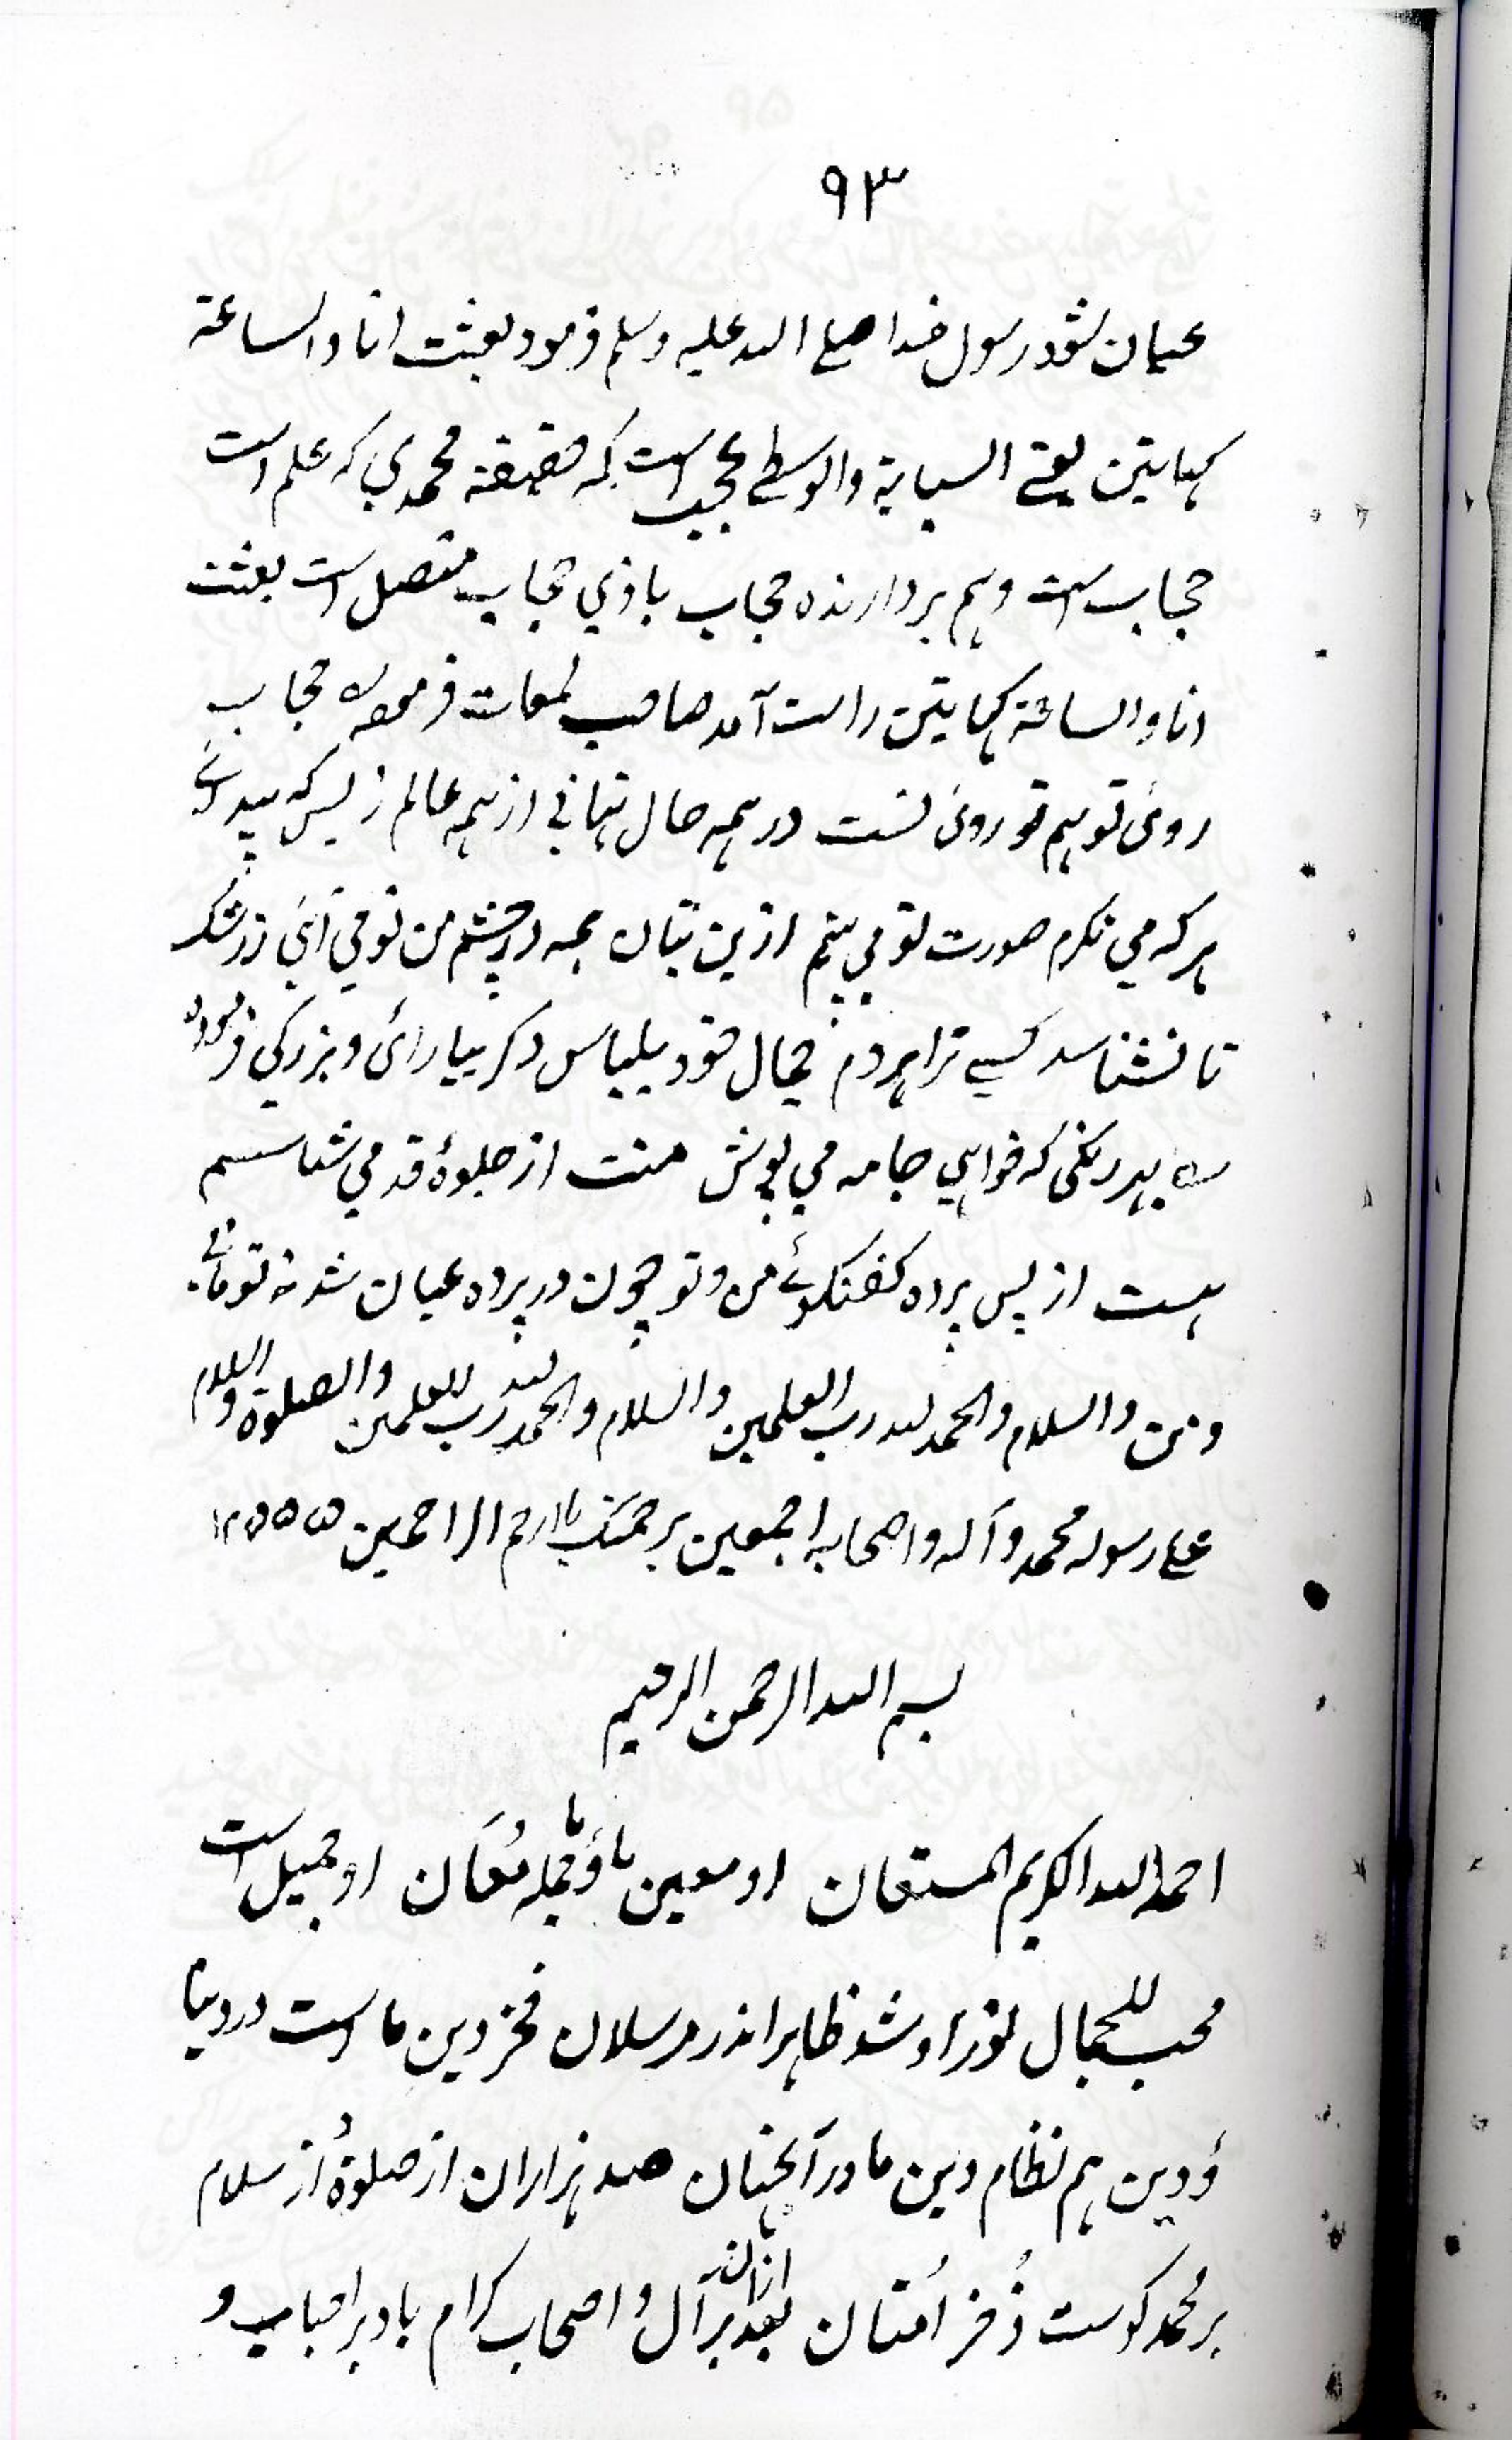 ۹۳
عیان نشود رسول خدا صلے اللہ علیہ وسلم فرمود بعثت انا والساعة
کہاتین یعنے السبابة والوسطے عجب است کہ حقیقة محمدي کہ علم است
حجاب است وہم بردارندہ حجاب باذي حجاب متصل است بعثت
انا والساعة کہاتین راست آمد صاحب لمعات فرمودہ حجاب
روئ تو ہم تو روئ تست در ہمہ حال نہاني از ہمہ عالم ز بس کہ پیدائے
بہر کہ مي نگرم صورت تو مي بینم ازین بتان ہمہ در چشم من تو مي آئي ز رشک
تا نشناسد کسے ترا ہر دم جمال خود بلباس دکر بیارائ و بزرکي فرمودہ
بہر رنکی کہ خواہي جامہ مي پوش منت از جلوۂ قد مي شناسم
ہست از پس پردہ کفتکوئے من و تو چون در پردہ عیان شد نہ تو مانے
ونہ من والسلام والحمد للہ رب العلمین والسلام والحمد للہ رب العلمین والصلوة والسلام
علے رسولہ محمد وآلہ واصحابہ اجمعین برحمتک یا ارحم الراحمین
بسم اللہ الرحمن الرحیم
احمد اللہ الکریم المستعان او معین ما و ما جملہ مُعَان او جمیل است
محب للجمال نور او شد ظاہر اندر مرسلان فخر دین ما است در دنیا
وُ دین ہم نظام دین ما در آنجہان صد ہزاران از صلوة وُ از سلام
بر محمد کوست ذُخر اُمتان بعد ازان بر آل وُ اصحاب کرام باد بر احباب و